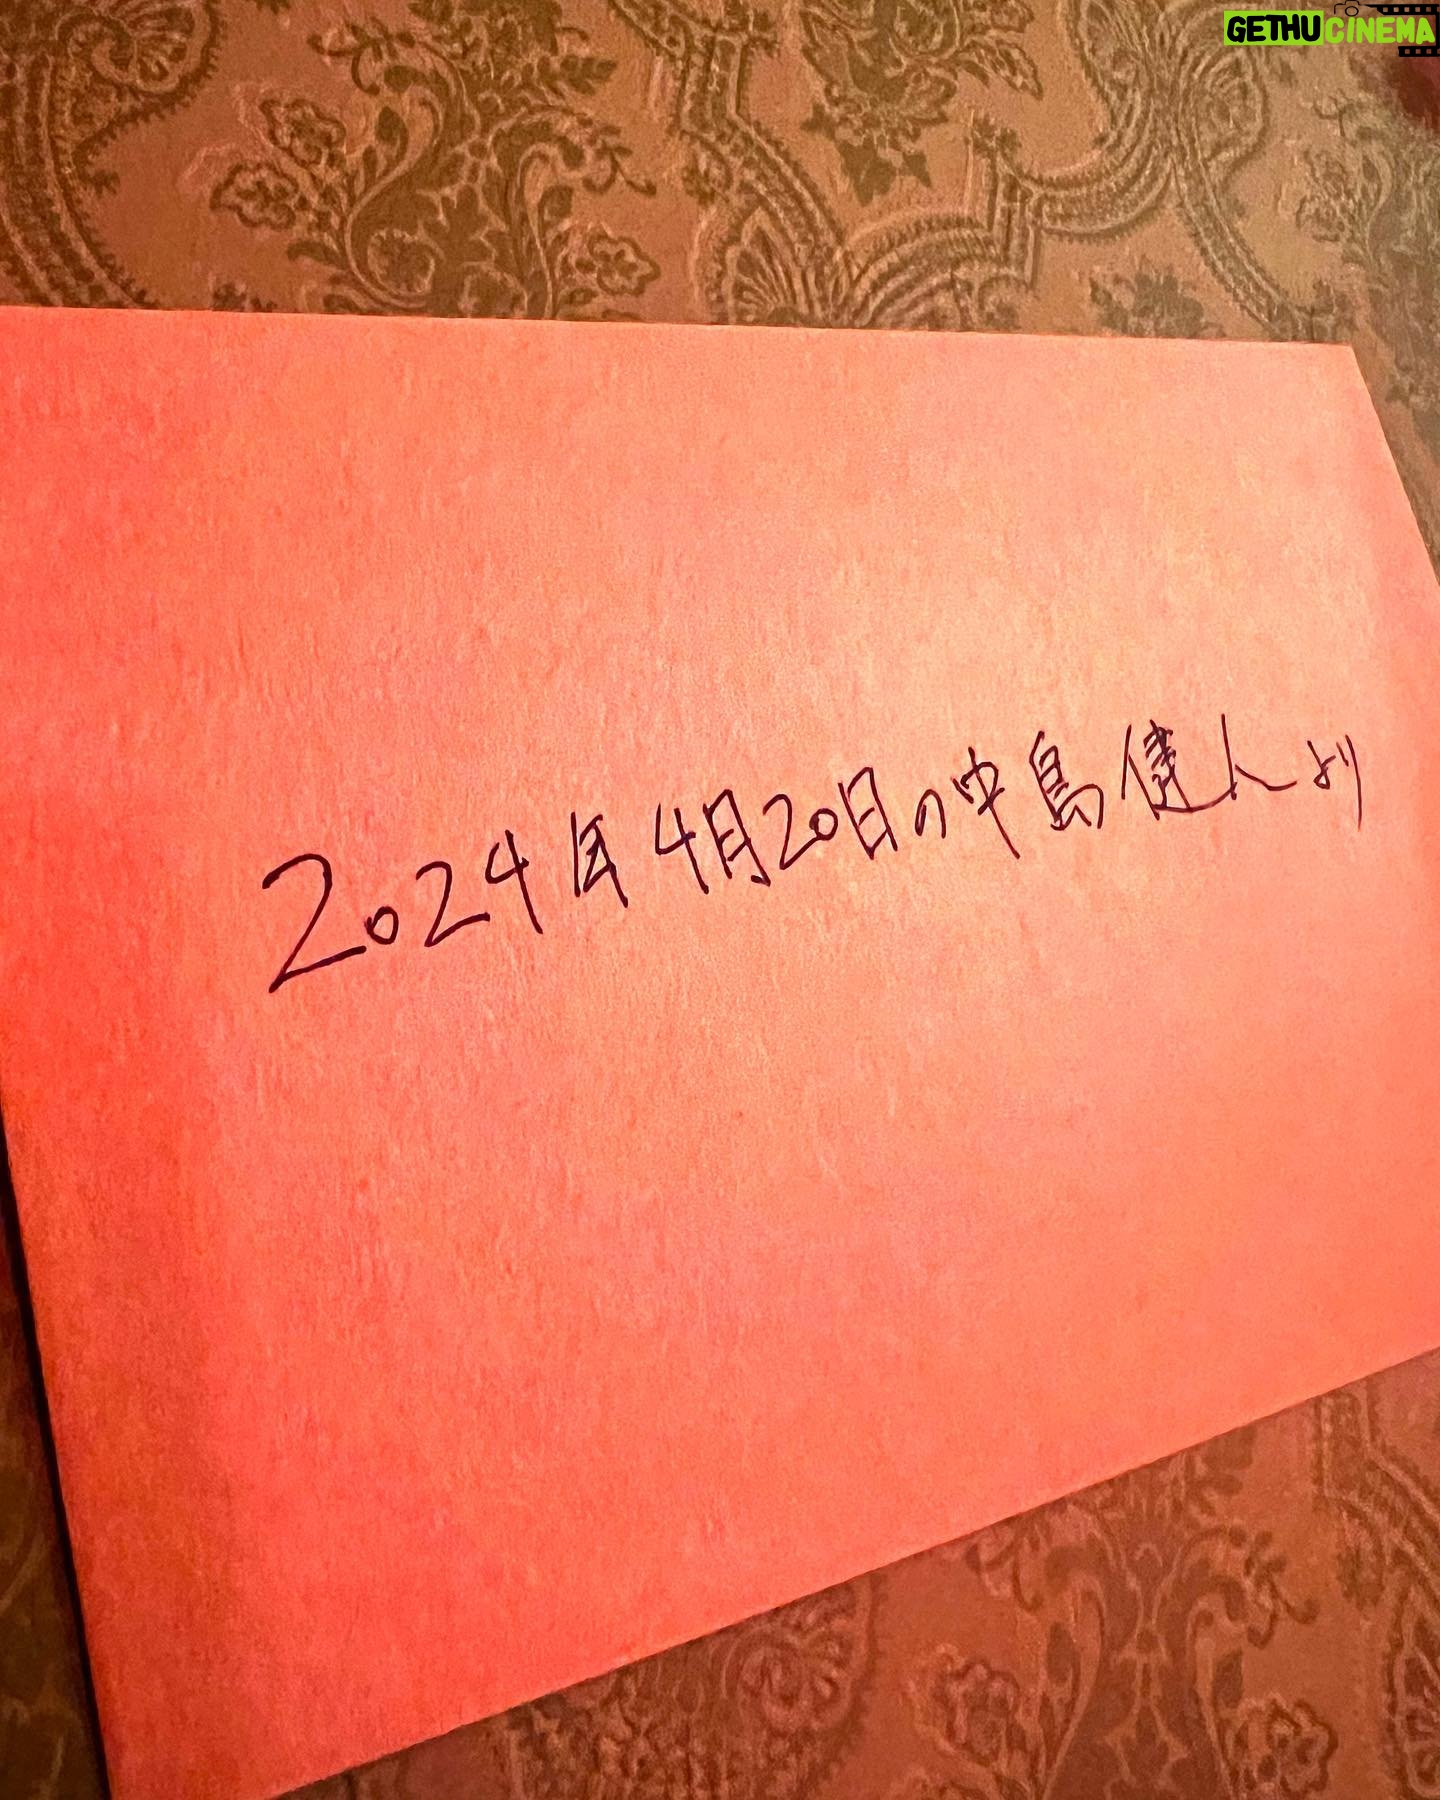 GETHUCINEMA
2024年4月20日の中島健人より